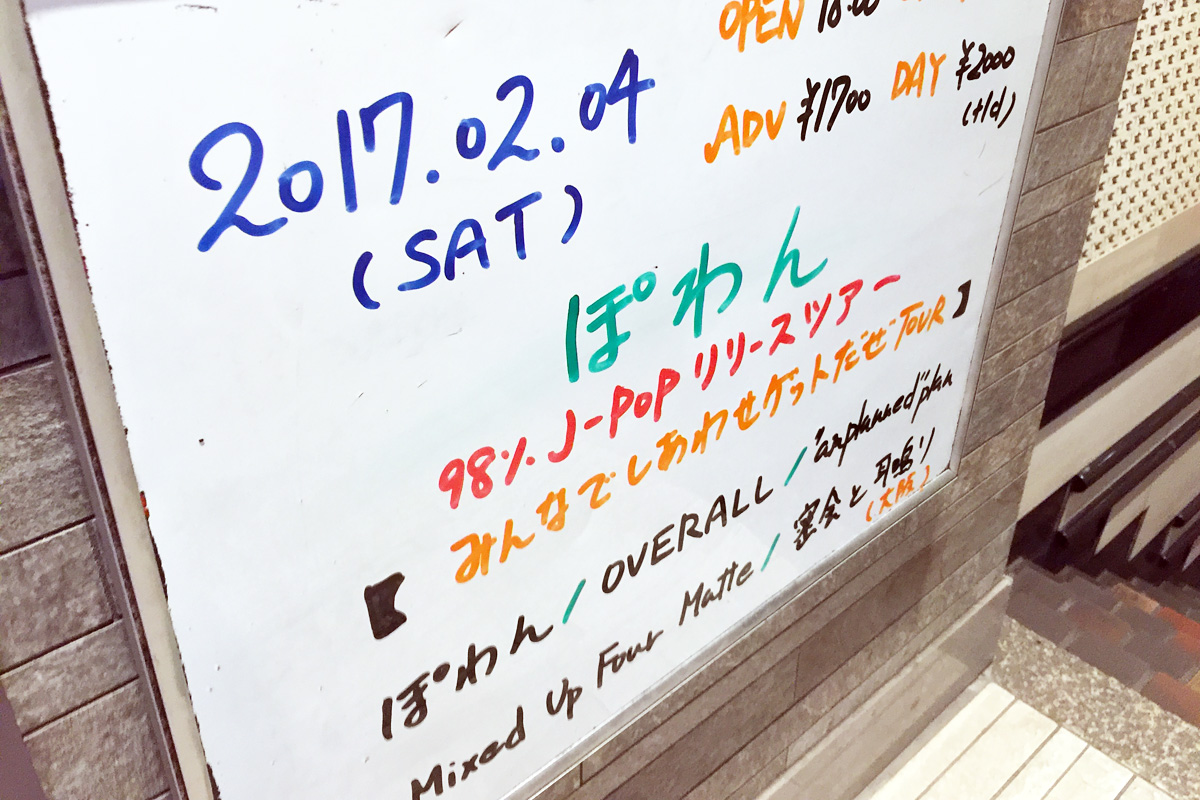 OPEN
ADV ¥1700 DAY ¥2000
(+1d)
2017.02.04
(SAT)
ぽわん
98% J-POP リリースツアー
みんなでしあわせゲットだぜTOUR】
【
ぽわん / OVERALL / "anplanned"plan
Mixed Up Four Matte / 宴会と耳鳴り
(大阪)